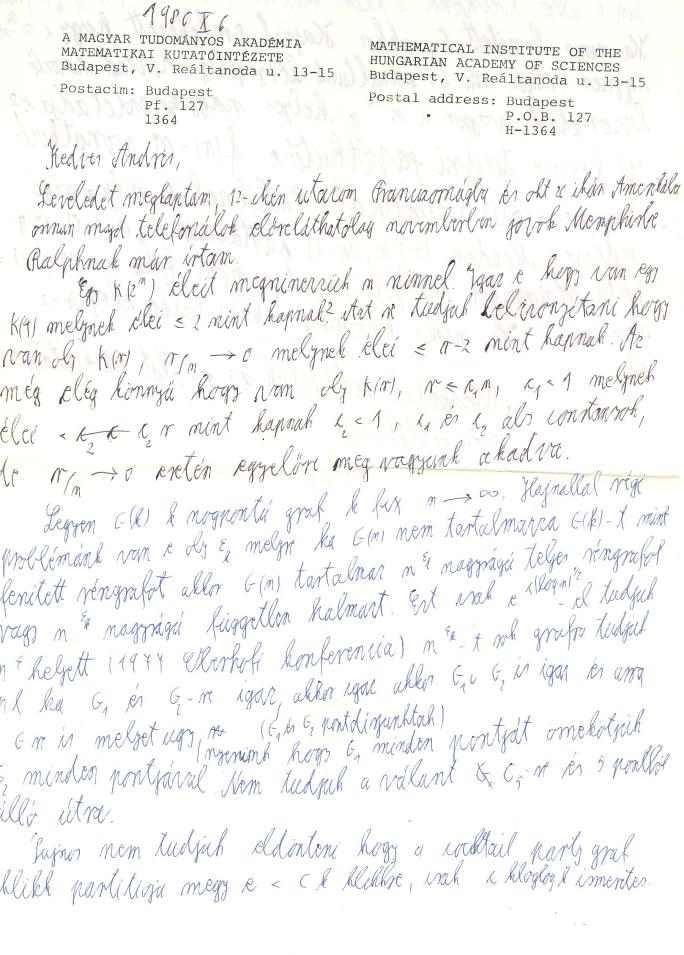 1986 X 6
A MAGYAR TUDOMÁNYOS AKADÉMIA
MATEMATIKAI KUTATÓINTÉZETE
Budapest, V. Reáltanoda u. 13-15
Postacim: Budapest
Pf. 127
1364
MATHEMATICAL INSTITUTE OF THE
HUNGARIAN ACADEMY OF SCIENCES
Budapest, V. Reáltanoda u. 13-15
Postal address: Budapest
P.O.B. 127
H-1364
Kedves András,
Leveledet megkaptam, 12-ikén utazom Franciaországba és okt ikán Amerikába
onnan majd telefonálok előreláthatólag novemberben jövök Memphisbe.
Ralphnak már irtam.
Egy K(2^n) éleit megszinezzük n szinnel. Igaz e hogy van egy
K(9) melynek élei ≤ 2 szint kapnak? Azt se tudjuk bebizonyítani hogy
van oly K(r), r/n → 0 melynek élei ≤ r-2 szint kapnak. Az
még elég könnyű hogy van oly K(r), r ≤ c₁n, c₁ < 1 melynek
élei < c₂ r szint kapnak c₂ < 1, c₁ és c₂ abs constansok,
de r/n → 0 esetén egyelőre meg vagyunk akadva.
Legyen G(k) k szögpontú gráf k fix n → ∞. Hajnallal régi
problémánk van e oly ε_k melyre ha G(n) nem tartalmazza G(k)-t mint
feszitett részgráfot akkor G(n) tartalmaz n^ε_k nagyságú teljes részgráfot
vagy n^ε_k nagyságú független halmazt. Ezt csak e^c(log n)^1/2 -el tudjuk
n^ε helyett (1977 Oberhofi konferencia) n^ε_k-t sok gráfra tudjuk
ha G₁ és G₂-re igaz, akkor igaz akkor G₁ ∪ G₂ is igaz és arra
G re is melyet ugy (G₁ és G₂ pontdiszjunktak)
nyerünk hogy G₁ minden pontját összekötjük
G₂ minden pontjával. Nem tudjuk a választ C₅-re és 5 pontból
álló útra.
Sajnos nem tudjuk eldönteni hogy a cocktail party graf
klikk partitioja megy e < c k klikkre, csak c k loglog k ismeretes.